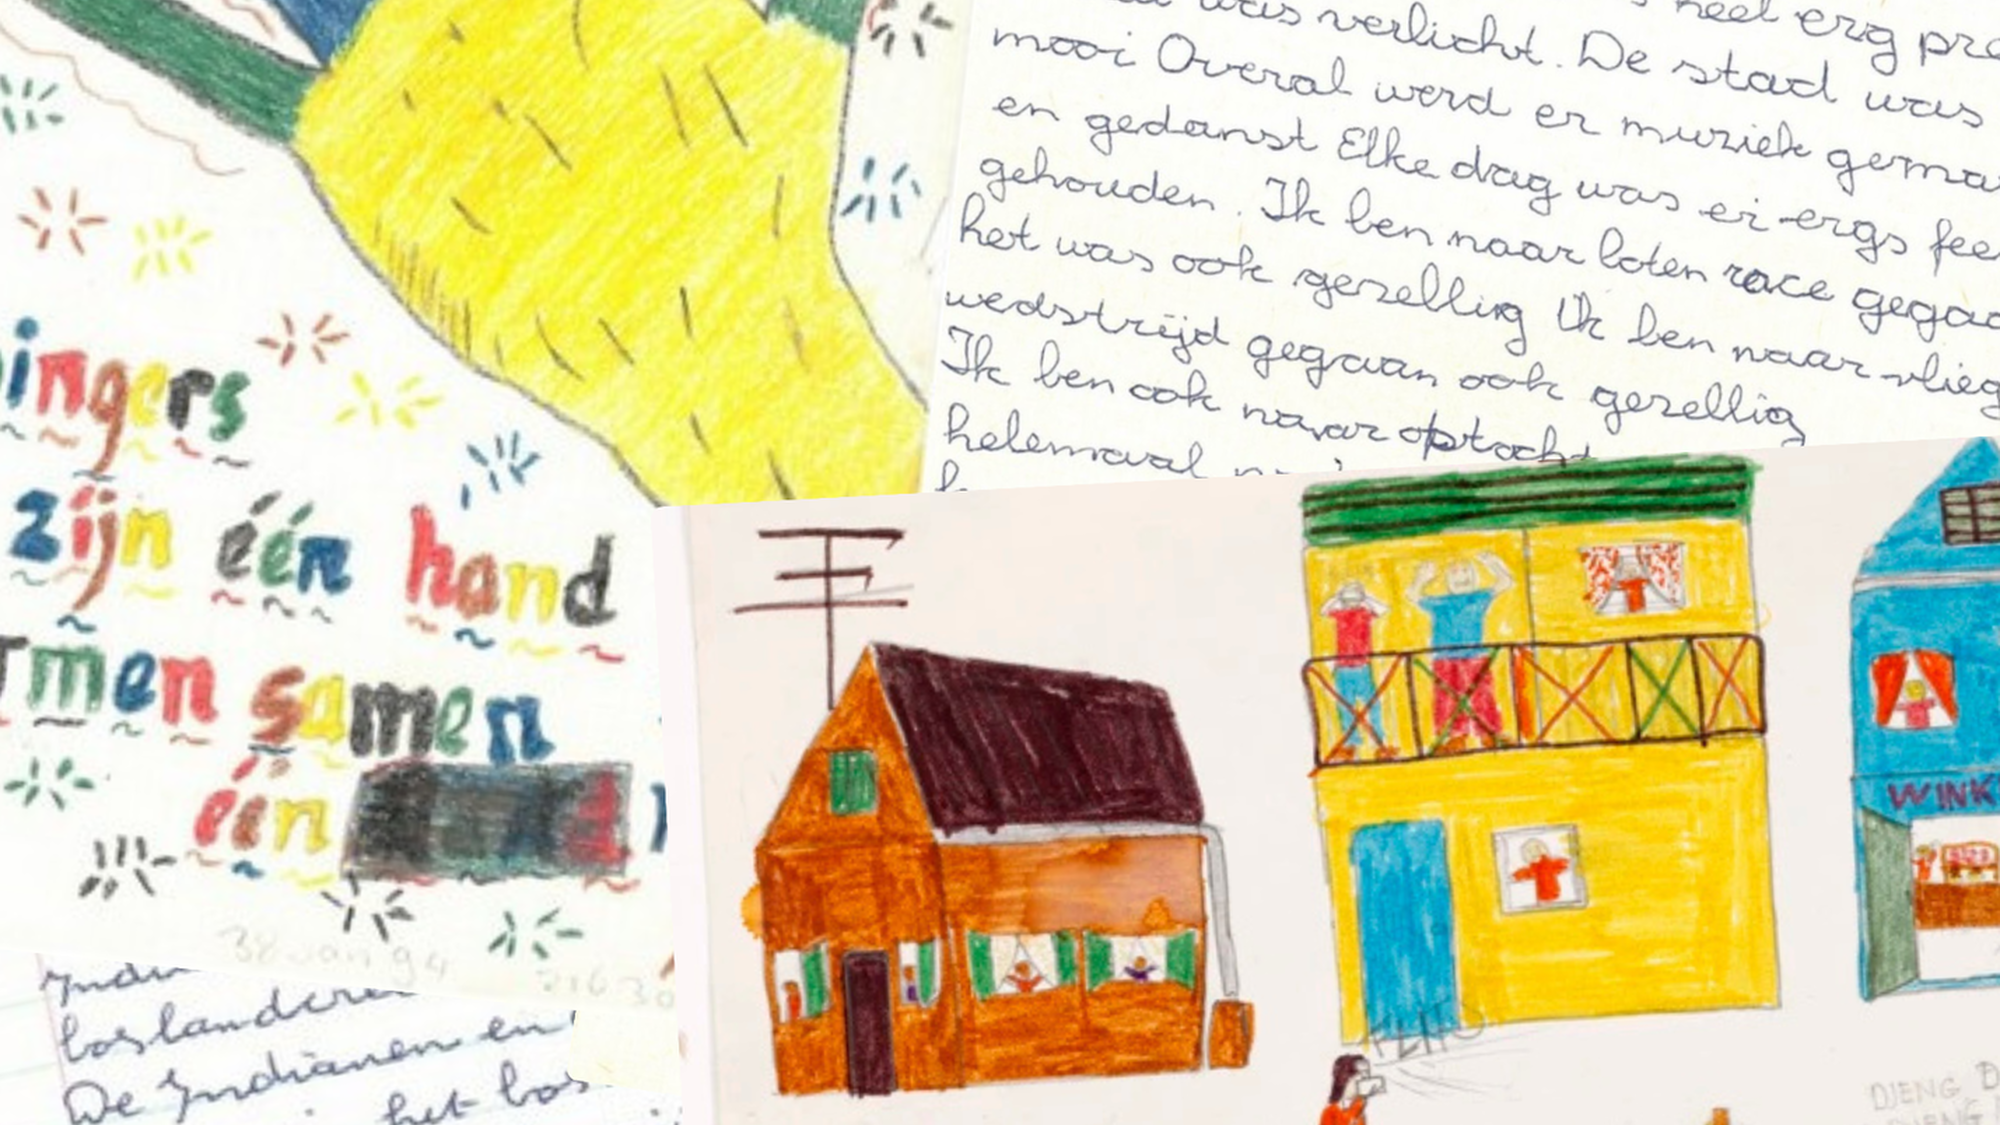 heel erg
was verlicht. De stad was
mooi Overal werd er muziek
en gedanst Elke dag was er ergs
gehouden. Ik ben naar loten race
het was ook gezellig Ik ben naar
wedstrijd gegaan ook gezellig
Ik ben ook naar optocht
helemaal
ingers
zijn één hand
men samen
één
38 van 94
216 30
boslandcre
De Indianen en
het bos
WINK
FLITS
DJENG
DJENG